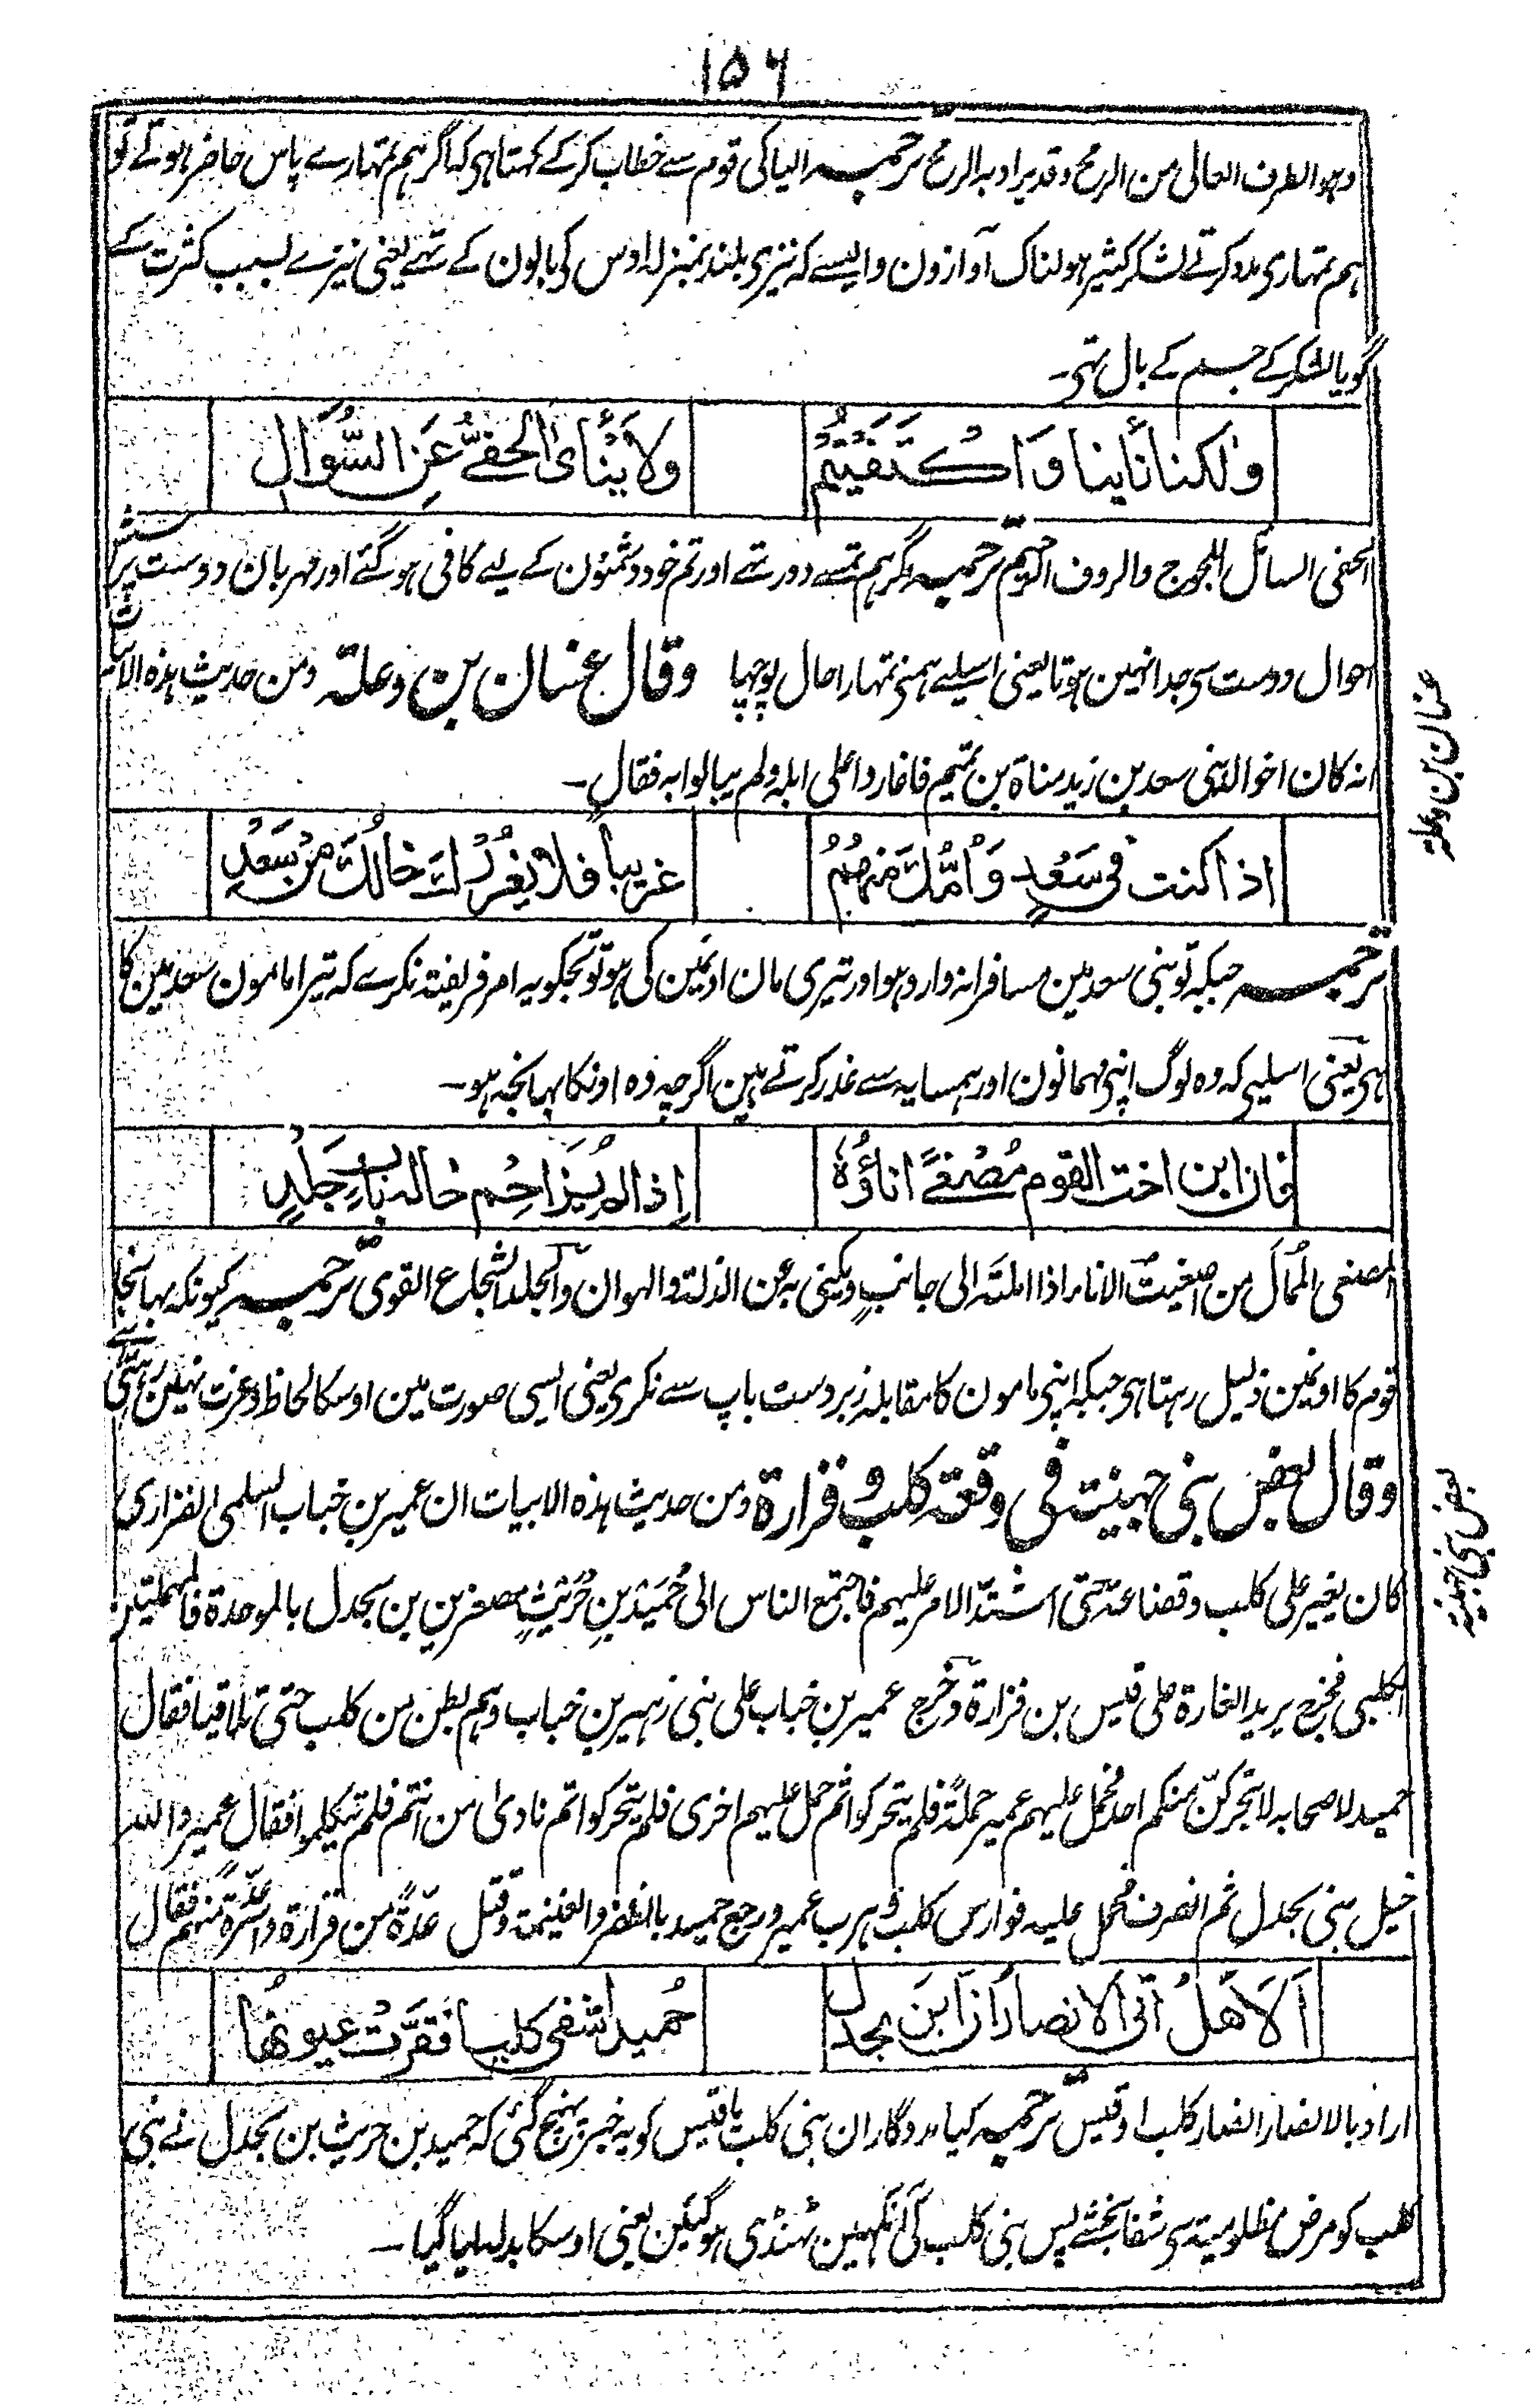 ۱۵۶
وہو الطرف العالی من الرمح وقد یراد بہ الرمح ترجمہ الیا کی قوم سے خطاب کرکے کہتا ہی کہ اگر ہم تمہارے پاس حاضر ہوتے تو
ہم تمہاری مدد کرتے لشکر کثیر ہولناک آوازون والیسے کہ نیزی بلند بمنزلہ اوس کی بالون کے تہے یعنی نیزے بسبب کثرت کے
گویا لشکر کے جسم کے بال تہی۔
ولكنا نأينا وَاكْتَفَيْتُمْ ولا يَنْأَى الحفيُّ عَنِ السُّوَالِ
الحفی السائل اللجوج والروف الرحیم ترجمہ مگر ہم تمسے دور تہے اور تم خود دشمنون کے لیے کافی ہو گئے اور مہربان دوست پرسش
احوال دوست سی جدا نہین ہوتا یعنی اسیلیے ہمنی تمہارا حال پوچہا وقال غسان بن وعلۃ ومن حدیث ہذہ الابیات
انہ کان اخوالہ بنی سعد بن زید مناۃ بن تمیم فاغاروا علی ابلہ ولم یبالوا بہ فقال۔
اذا كنت في سَعْدٍ وَاُمُّكَ مِنهُمُ غريباً فلا يَغْرُرْكَ خالُكَ مِنْ سَعْدِ
ترجمہ جبکہ تو بنی سعد مین مسافرانہ وارد ہو اور تیری مان اونمین کی ہو تو تجکو یہ امر فریفتہ نکرے کہ تیرا مامون سعد مین کا
ہی یعنی اسلیی کہ وہ لوگ اپنی مہمانون اور ہمسایہ سے غدر کرتے ہین اگرچہ وہ اونکا بہانجہ ہو۔
فان ابن اخت القوم مُصْغىً اناؤُهُ اِذا لم يُزَاحِمْ خاله بِأَبٍ جَلْدِ
المصغی الممال من اصغیت الاناء اذا املتہ الی جانبٍ ویکنی بہ عن الذلۃ والہوان والجلد الشجاع القوی ترجمہ کیونکہ بہانجا
قوم کا اونمین ذلیل رہتا ہی جبکہ اپنی مامون کا مقابلہ زبردست باپ سے نکری یعنی ایسی صورت مین اوسکا لحاظ وعزت نہین رہتی
وقال بعض بنی جہینۃ فی وقعۃ کلب و فزارۃ ومن حدیث ہذہ الابیات ان عمیر بن خباب السلمی الفزاری
کان یغیر علی کلب وقضاعۃ حتی اشتدّ الامر علیہم فاجتمع الناس الی حُمَیْدِ بنِ حُرَیْثٍ مصغرین بن بجدل بالموحدۃ فالمہملتین
الکلبی فخرج یرید الغارۃ علی قیس بن فزارۃ وخرج عمیر بن خباب علی بنی زہیر بن خباب وہم بطن من کلب حتی تلاقیا فقال
حمید لاصحابہ لا یتحرکنّ منکم احد فحمل علیہم عمیر حملۃً فلم یتحرکوا ثم حمل علیہم اخری فلم یتحرکوا ثم نادی من انتم فلم یتکلموا فقال عمیر واللہ
خیل بنی بجدل ثم انصرف فحمل علیہ فوارس کلب وہرب عمیر ورجع حمید بالظفر والغنیمۃ وقتل عدّۃً من فزارۃ واسر عدّۃً منہم فقال
اَلَا هَلْ اَتٰى الانصارَ اَنَّ ابنَ بجدل حُمیداً شفى كلباً فقَرَّتْ عيونُها
اراد بالانصار انصار کلب او قیس ترجمہ کیا مددگاران بنی کلب یا قیس کو یہ خبر پہنچ گئی کہ حمید بن حریث بن بجدل نے بنی
کلب کو مرض مظلومیۃ سی شفا بخشے پس بنی کلب کی آنکہین ٹہنڈی ہوگئین یعنی اوسکا بدلہ لیا گیا۔
غسان بن وعلۃ
بعض بنی جہینۃ